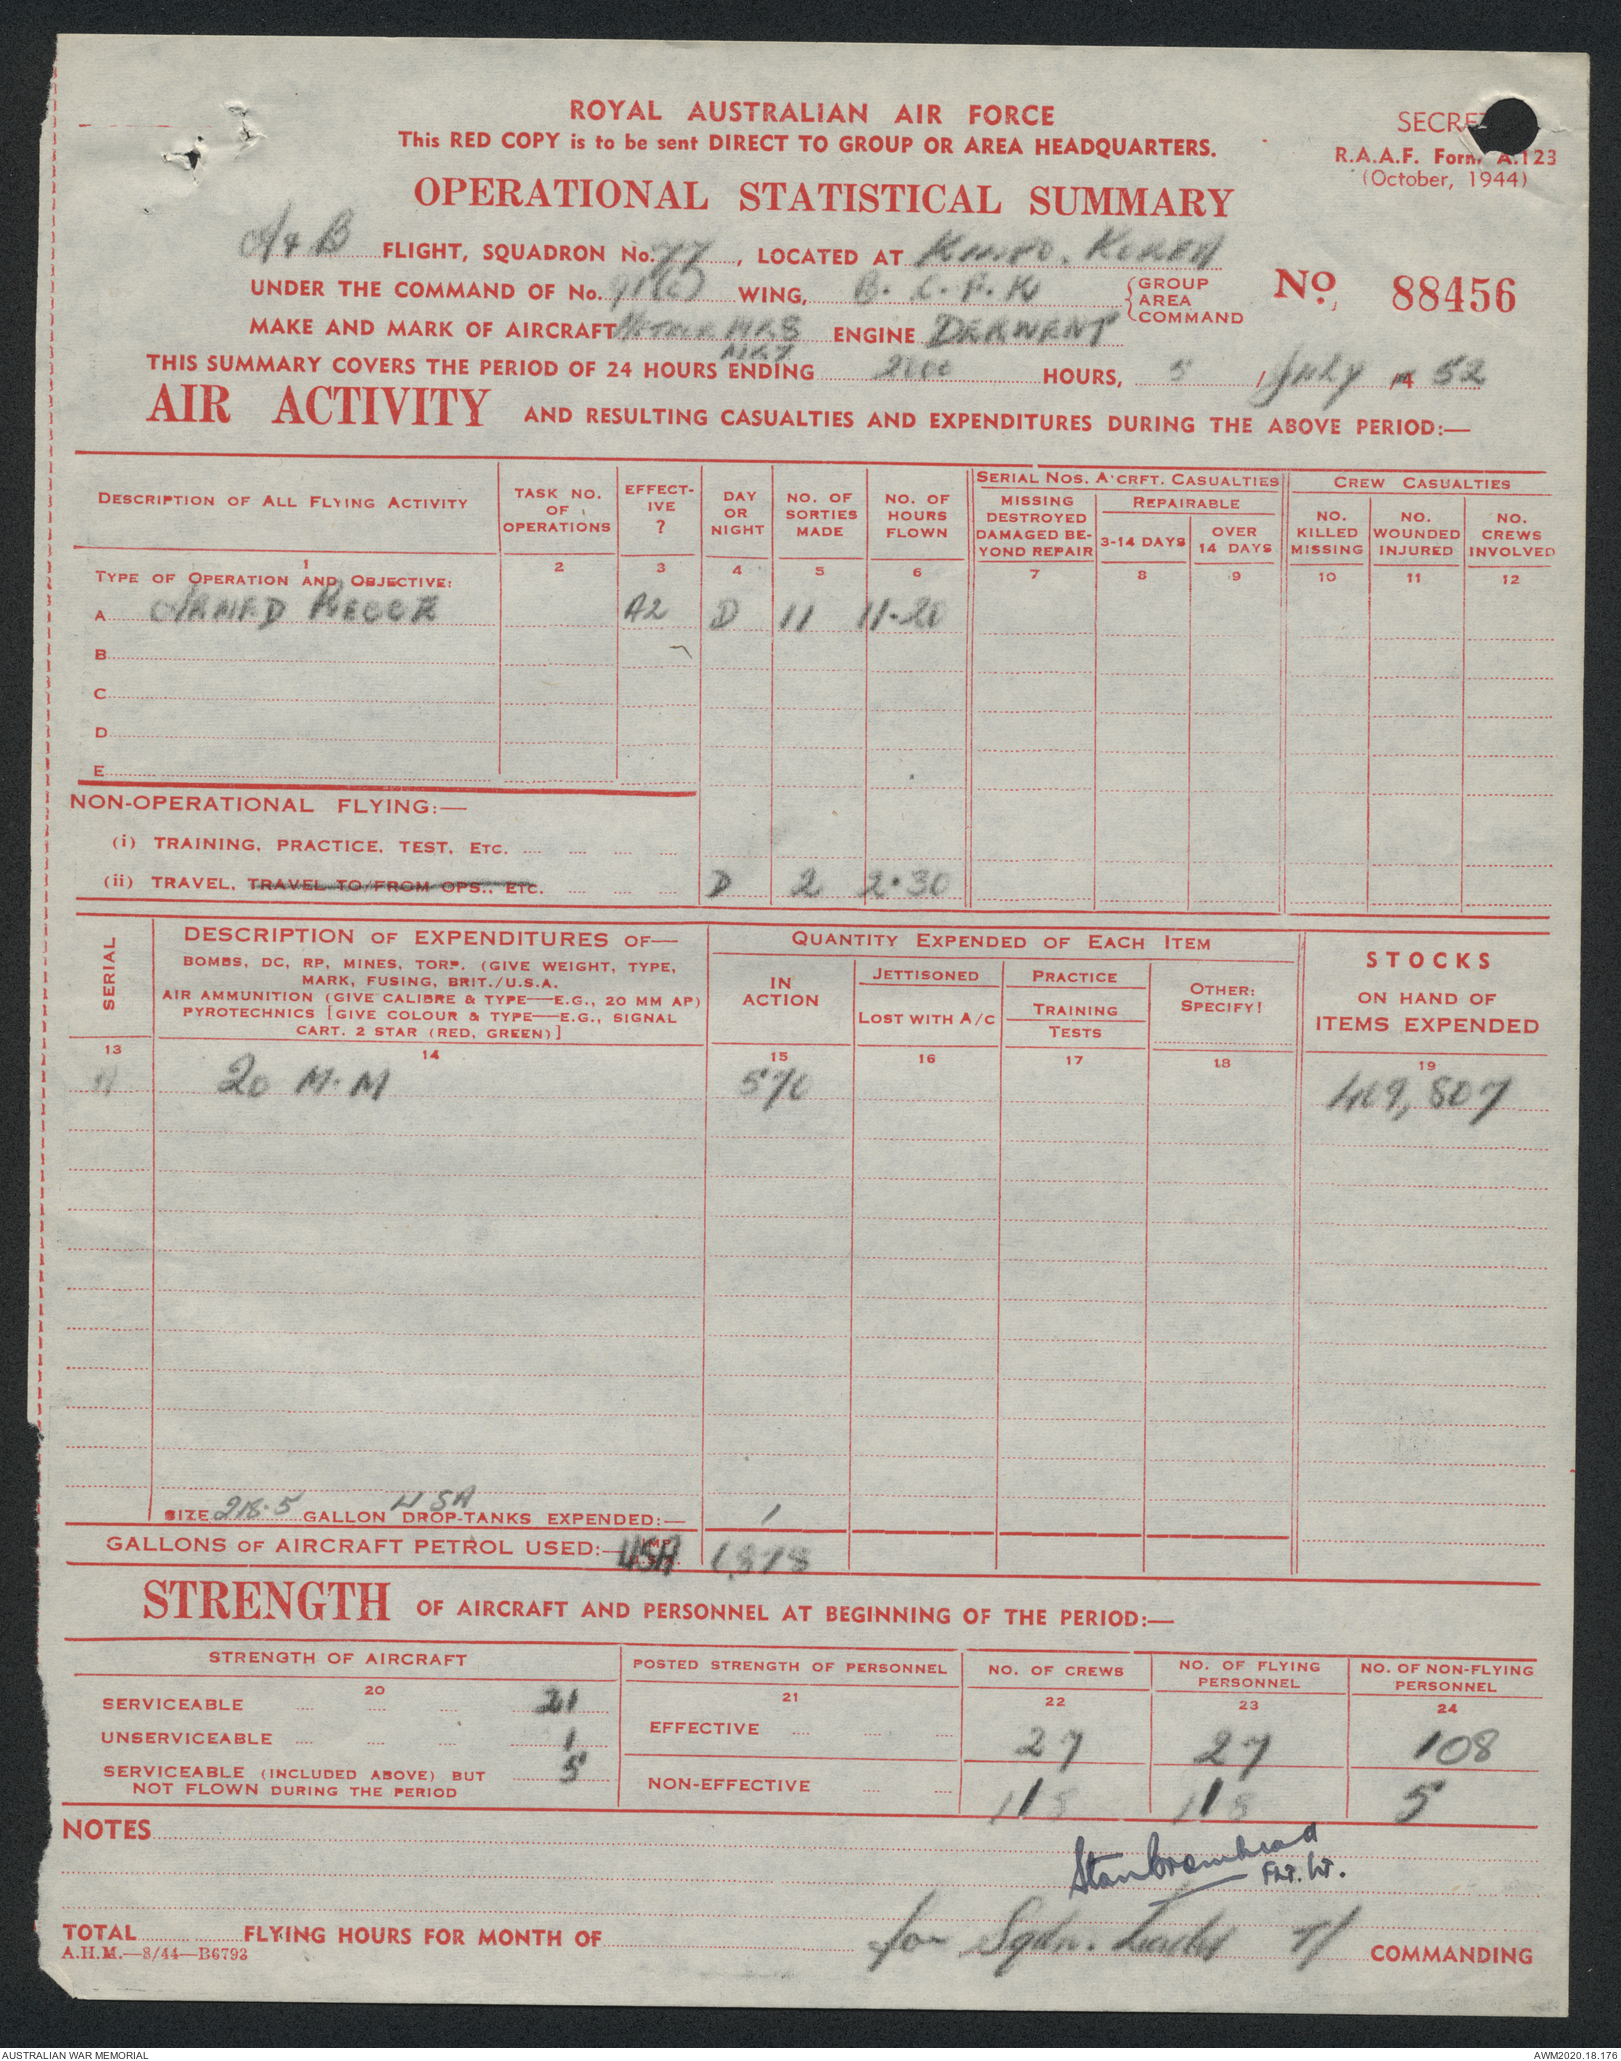 ROYAL AUSTRALIAN AIR FORCE
This RED COPY is to be sent DIRECT TO GROUP OR AREA HEADQUARTERS.
SECRET
R.A.A.F. Form A.123
(October, 1944)
OPERATIONAL STATISTICAL SUMMARY
A & B FLIGHT, SQUADRON No. 77, LOCATED AT KIMPO, KOREA
UNDER THE COMMAND OF No. 91(C) WING, B.C.F.K GROUP AREA COMMAND
No. 88456
MAKE AND MARK OF AIRCRAFT METEOR MK8 MK7 ENGINE DERWENT
THIS SUMMARY COVERS THE PERIOD OF 24 HOURS ENDING 2000 HOURS, 5 / July /4 52
AIR ACTIVITY AND RESULTING CASUALTIES AND EXPENDITURES DURING THE ABOVE PERIOD:—
DESCRIPTION OF ALL FLYING ACTIVITY
TASK NO. OF OPERATIONS
EFFECTIVE ?
DAY OR NIGHT
NO. OF SORTIES MADE
NO. OF HOURS FLOWN
SERIAL NOS. A'CRFT. CASUALTIES
MISSING DESTROYED DAMAGED BEYOND REPAIR
REPAIRABLE
3-14 DAYS
OVER 14 DAYS
CREW CASUALTIES
NO. KILLED MISSING
NO. WOUNDED INJURED
NO. CREWS INVOLVED
1 2 3 4 5 6 7 8 9 10 11 12
TYPE OF OPERATION AND OBJECTIVE:
A ARMED RECCE A2 D 11 11.20
B
C
D
E
NON-OPERATIONAL FLYING:—
(i) TRAINING, PRACTICE, TEST, ETC. .... .... .... ....
(ii) TRAVEL, TRAVEL TO/FROM OPS., ETC. .... .... .... D 2 2.30
SERIAL
DESCRIPTION OF EXPENDITURES OF—
BOMBS, DC, RP, MINES, TORP. (GIVE WEIGHT, TYPE,
MARK, FUSING, BRIT./U.S.A.
AIR AMMUNITION (GIVE CALIBRE & TYPE—E.G., 20 MM AP)
PYROTECHNICS [GIVE COLOUR & TYPE—E.G., SIGNAL
CART. 2 STAR (RED, GREEN)]
QUANTITY EXPENDED OF EACH ITEM
IN ACTION
JETTISONED
LOST WITH A/C
PRACTICE
TRAINING
TESTS
OTHER: SPECIFY!
STOCKS
ON HAND OF
ITEMS EXPENDED
13 14 15 16 17 18 19
A 20 M.M 570 409,807
SIZE 218.5 GALLON USA DROP-TANKS EXPENDED:— 1
GALLONS OF AIRCRAFT PETROL USED:— USA 1,878
STRENGTH OF AIRCRAFT AND PERSONNEL AT BEGINNING OF THE PERIOD:—
STRENGTH OF AIRCRAFT
POSTED STRENGTH OF PERSONNEL
NO. OF CREWS
NO. OF FLYING PERSONNEL
NO. OF NON-FLYING PERSONNEL
20 21 22 23 24
SERVICEABLE .... .... .... 21
UNSERVICEABLE .... .... .... 1
SERVICEABLE (INCLUDED ABOVE) BUT
NOT FLOWN DURING THE PERIOD 5
EFFECTIVE .... .... .... 27 27 108
NON-EFFECTIVE .... .... 5
NOTES
Stan Bromhead
FLT. LT.
TOTAL FLYING HOURS FOR MONTH OF
for Sqdn. COMMANDING
A.H.M.—8/44—B6793
AUSTRALIAN WAR MEMORIAL
AWM2020.18.176